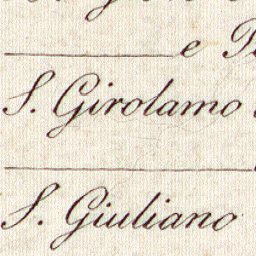 e
S. Girolamo
S. Giuliano